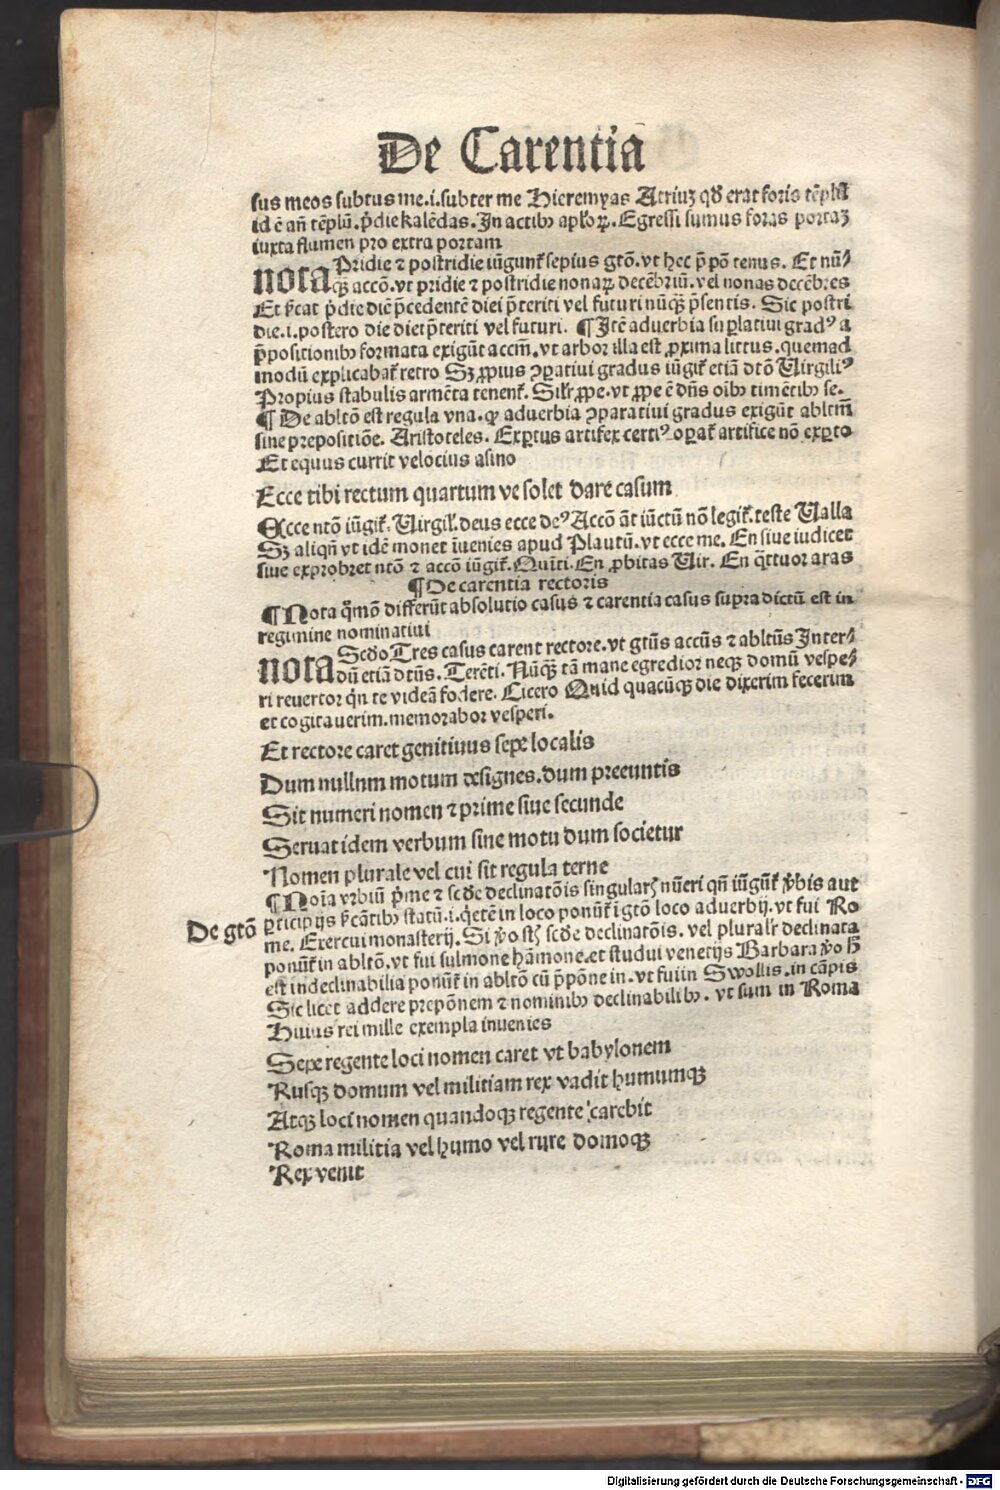 De Carentia
sus meos subtus me.i.subter me Hieremyas Atriuʒ qď erat foris tẽpłi
id ẽ añ tẽplũ.p̃die kalẽdas.In actibꝰ apłoꝝ.Egressi sumus foras portaʒ
iuxta flumen pro extra portam
nota Pridie ⁊ postridie iũgunt̃ sepius gtõ.vt hec p̃põ tenus. Et nũ⸗
qꝫ accõ.vt pridie ⁊ postridie nonaꝝ decẽbriũ.vel nonas decẽbres
Et p̃cat p̃die diẽ p̃cedentẽ diei p̃teriti vel futuri nũqꝫ p̃sentis. Sic postri
die.i.postero die diei p̃teriti vel futuri. ¶ Itẽ aduerbia suꝑlatiui gradꝰ a
p̃positionibꝰ formata exigũt accm̃.vt arbor illa est ꝓxima littus.quemad
modũ explicabat̃ retro Sꝫ ꝓpius ꝯꝑatiui gradus iũgit̃ etiã dtõ Virgiliꝰ
Propius stabulis armẽta tenent̃. Silr̃ ꝓpe.vt ꝓpe ẽ dñs oĩbꝰ timẽtibꝰ se.
¶ De abltõ est regula vna.ꝙ aduerbia ꝯparatiui gradus exigũt abltm̃
sine prepositiõe. Aristoteles. Exꝑtus artifex certiꝰ oꝑat̃ artifice nõ exꝑto
Et equus currit velocius asino
Ecce tibi rectum quartum ve solet dare casum
Ecce ntõ iũgit̃. Virgił.deus ecce deꝰ Accõ ãt iũctũ nõ legit̃.teste Valla
Sꝫ aliqñ vt idẽ monet ĩuenies apud Plautũ.vt ecce me. En siue iudicet
siue exprobret ntõ ⁊ accõ iũgit̃.Quĩti.En ꝓbitas Vir. En q̃ttuor aras
¶ De carentia rectoris
¶ Nota q̃mõ differũt absolutio casus ⁊ carentia casus supradictũ est in
regimine nominatiui
nota Scďo Tres casus carent rectore.vt gtũs accũs ⁊ abltũs Inter⸗
dũ etiã dtũs. Terẽti. Nũqꝫ tã mane egredior neqꝫ domũ vespe⸗
ri reuertor q̃n te videã fodere. Cicero Quid quacũqꝫ die dixerim fecerim
et cogitauerim.memorabor vesperi.
Et rectore caret genitiuus sepe localis
Dum nullnm motum designes.dum preeuntis
Sit numeri nomen ⁊ prime siue secunde
Seruat idem verbum sine motu dum societur
Nomen plurale vel cui sit regula terne
¶ Noĩa vrbiũ p̃me ⁊ scďe declinatõis singularꝭ nũeri qñ iũgũt̃ v̓bis aut
De gtõ
ꝑticipijs p̃cãtibꝰ statũ.i.q̃etẽ in loco ponũt̃ ĩ gtõ loco aduerbij.vt fui Ro
me. Exercui monasterij. Si v̓o stꝭ scďe declinatõis. vel pluralr̃ declinata
ponũt̃ in abltõ.vt fui sulmone hãmone.et studui venetijs Barbara v̓o ħ
est indeclinabilia ponũt̃ in abltõ cũ p̃põne in.vt fui in Swollis.in cãpis
Sic licet addere prepõnem ⁊ nominibꝰ declinabilibꝰ. vt sum in Roma
Huius rei mille exempla inuenies
Sepe regente loci nomen caret vt babylonem
Rusqꝫ domum vel militiam rex vadit humumqꝫ
Atqꝫ loci nomen quandoqꝫ regente carebit
Roma militia vel humo vel rure domoqꝫ
Rex venit
Digitalisierung gefördert durch die Deutsche Forschungsgemeinschaft - DFG